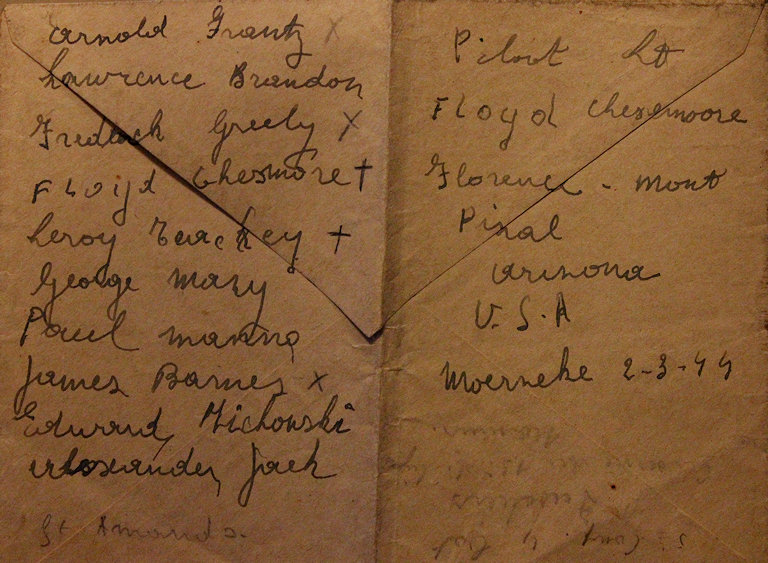 Arnold Frantz x
Lawrence Brandon
Fredlock Greely x
Floyd Chesmore +
Leroy Teackey +
George Mary
Paul Manno
James Barnes x
Edward, Michowski
Jack
St Amands.
Pilout Lt
Floyd Chesemoore
Florence - Mont
Pinal
Arinona
U.S.A
Moerneke 2-3-44